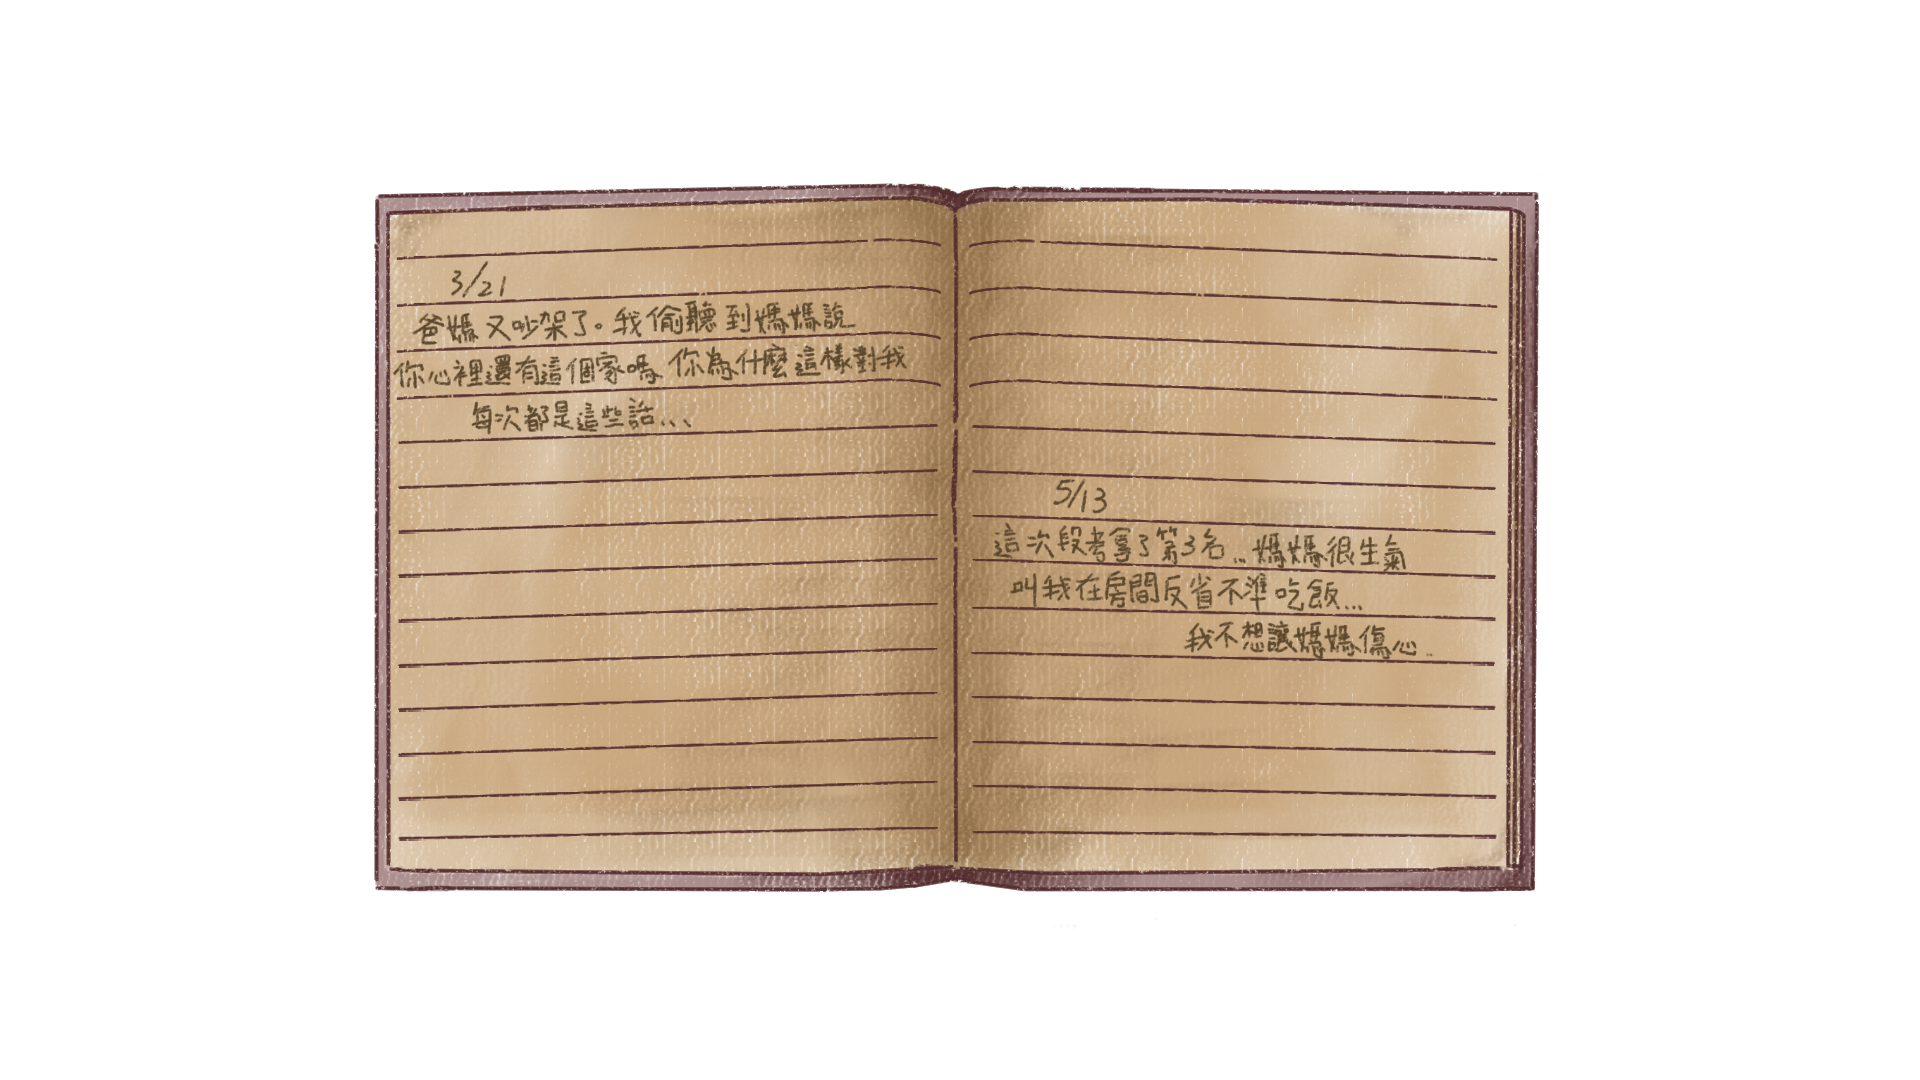 3/21
爸媽又吵架了。我偷聽到媽媽說
你心裡還有這個家嗎 你為什麼這樣對我
每次都是這些話...
5/13
這次段考拿了第3名...媽媽很生氣
叫我在房間反省不準吃飯...
我不想讓媽媽傷心..